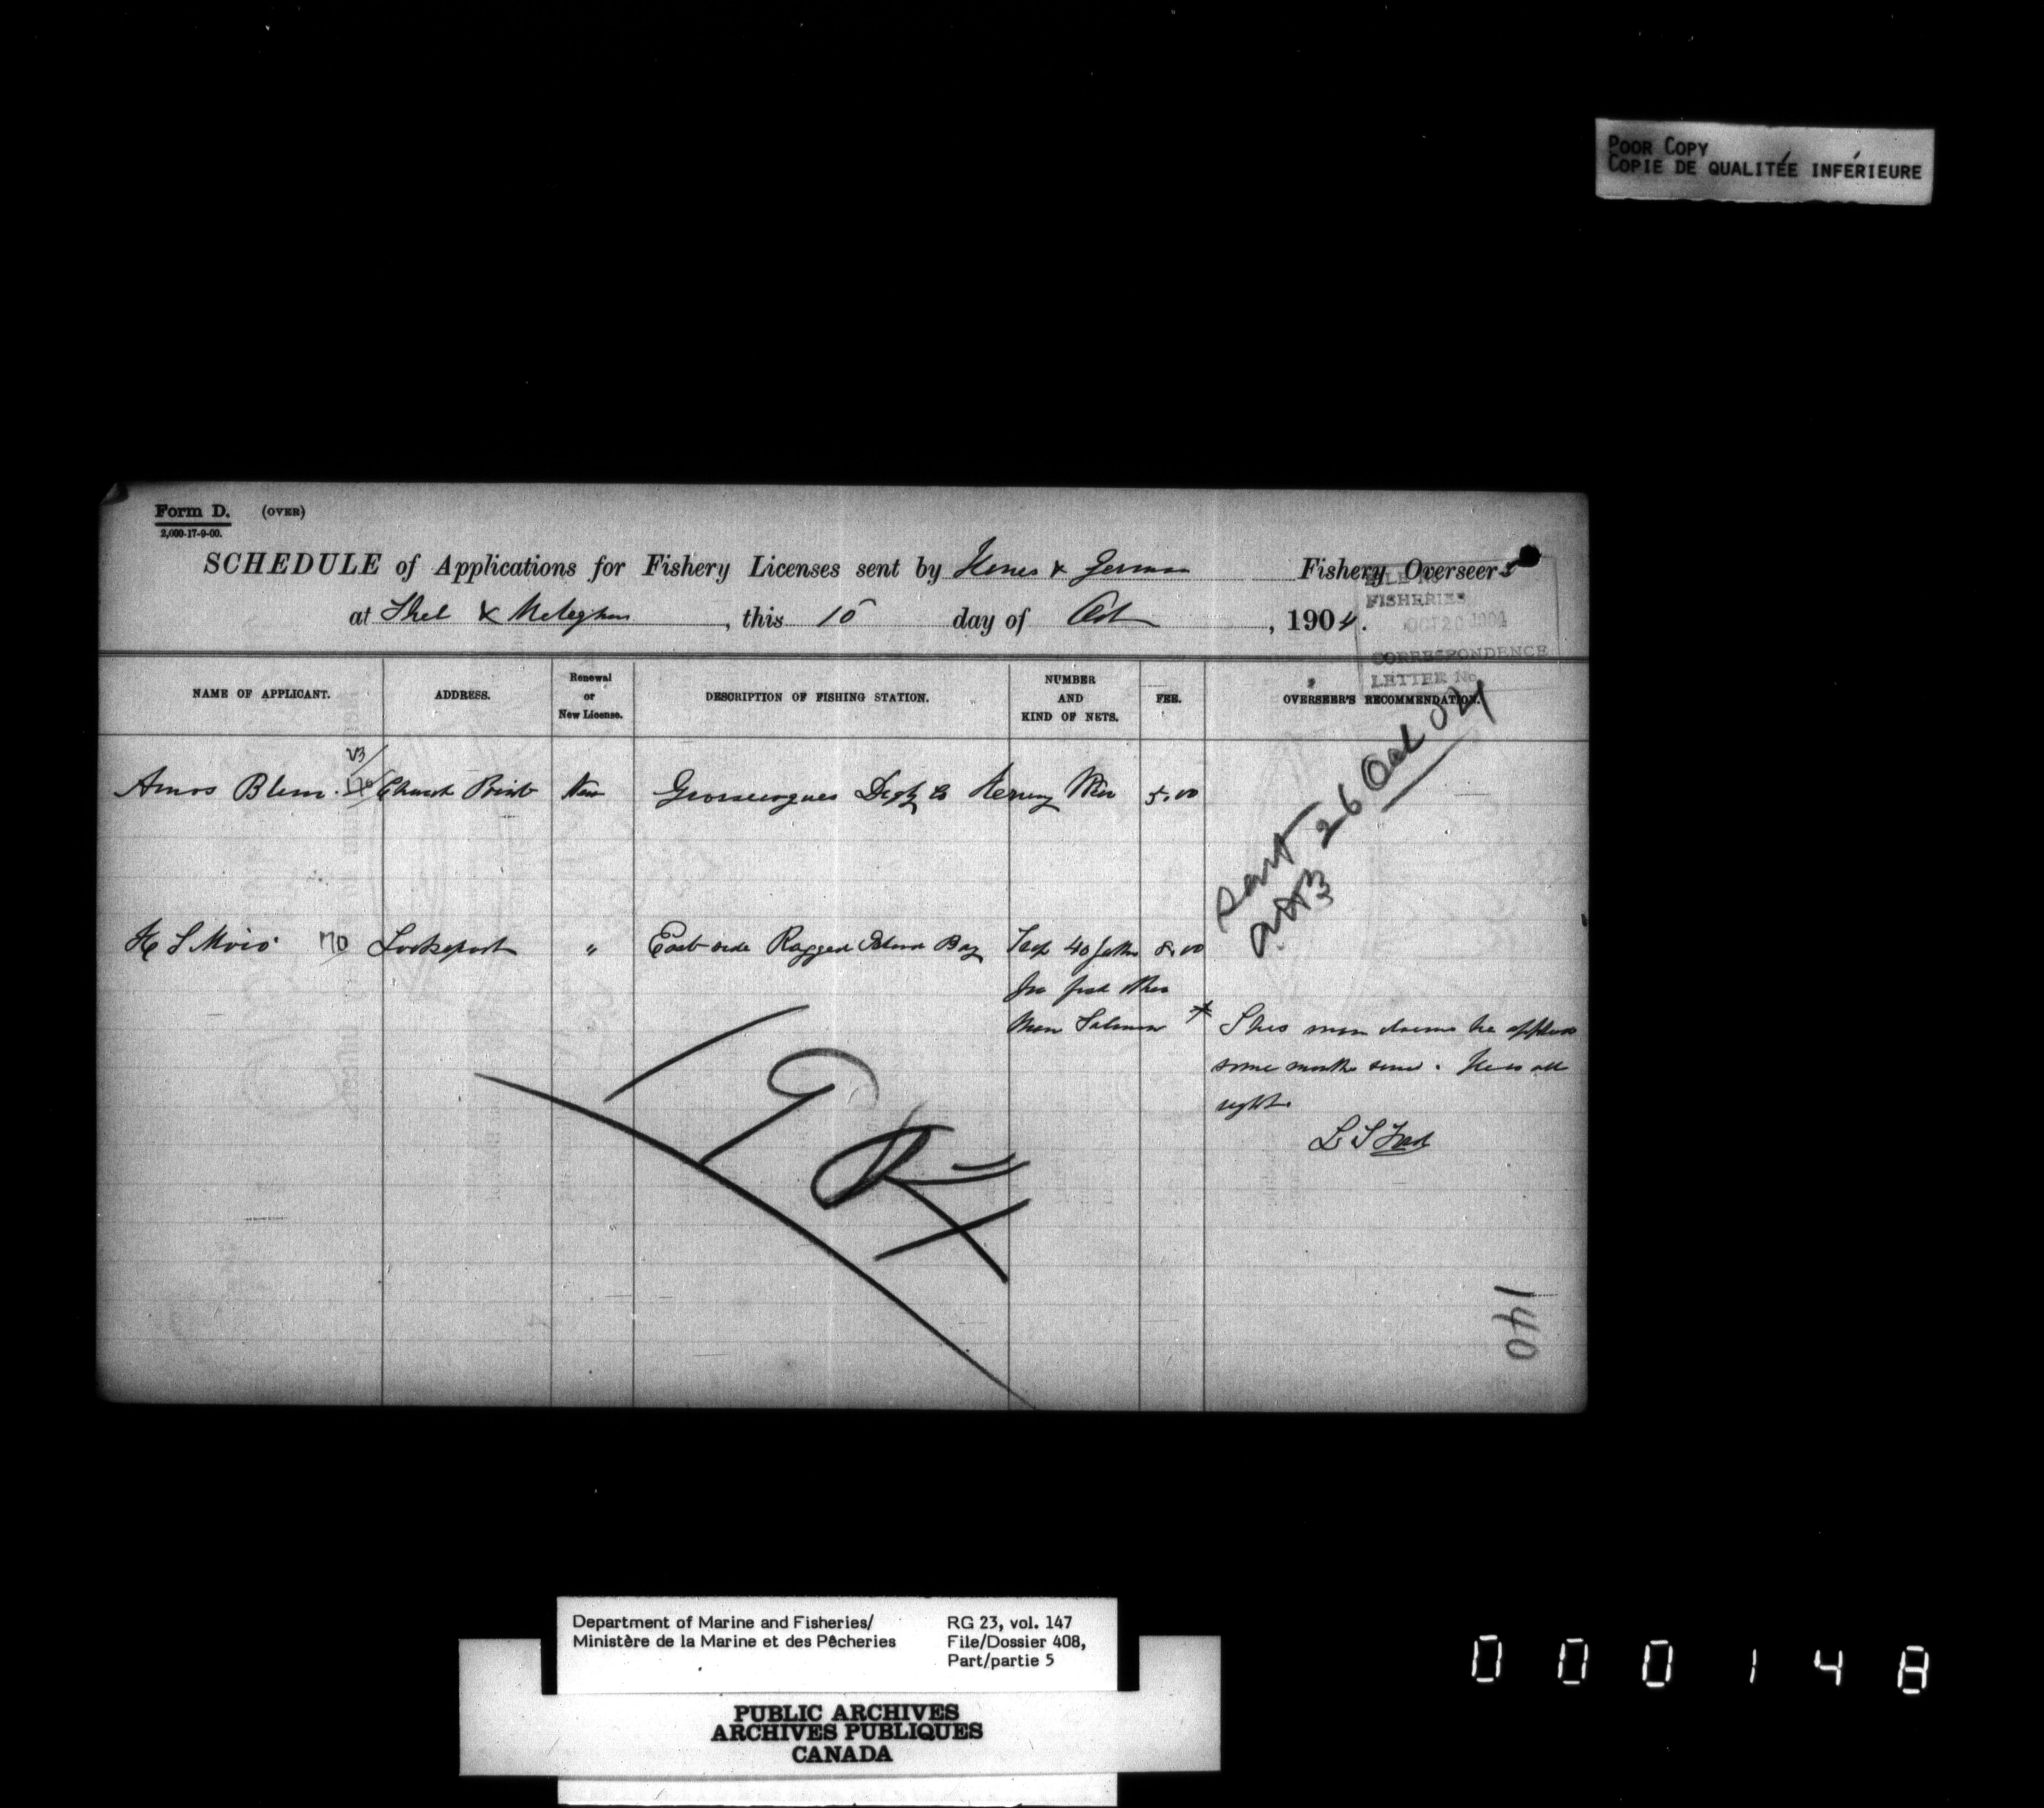 POOR COPY
COPIE DE QUALITÉE INFÉRIEURE
Form D. (OVER)
2,000-17-9-00.
SCHEDULE of Applications for Fishery Licenses sent by & German Fishery Overseers
at Shel & Meteghan, this 15 day of Oct, 1904.
FILE No
FISHERIES
OCT 20 1904
CORRESPONDENCE
LETTER No.
NAME OF APPLICANT. ADDRESS. Renewal or New License. DESCRIPTION OF FISHING STATION. NUMBER AND KIND OF NETS. FEE. OVERSEER'S RECOMMENDATION.
Amos Church Point New Digby Co Herring Weir 5.00
Sent 26 Oct 04
H S 170 Lockeport " East side Ragged Island Bay Trap 40 fath 8.00
for fish other
than Salmon * This man claims he applied
some months since. He is all
right.
L S Ford
140
Department of Marine and Fisheries/
Ministère de la Marine et des Pêcheries
RG 23, vol. 147
File/Dossier 408,
Part/partie 5
PUBLIC ARCHIVES
ARCHIVES PUBLIQUES
CANADA
000148